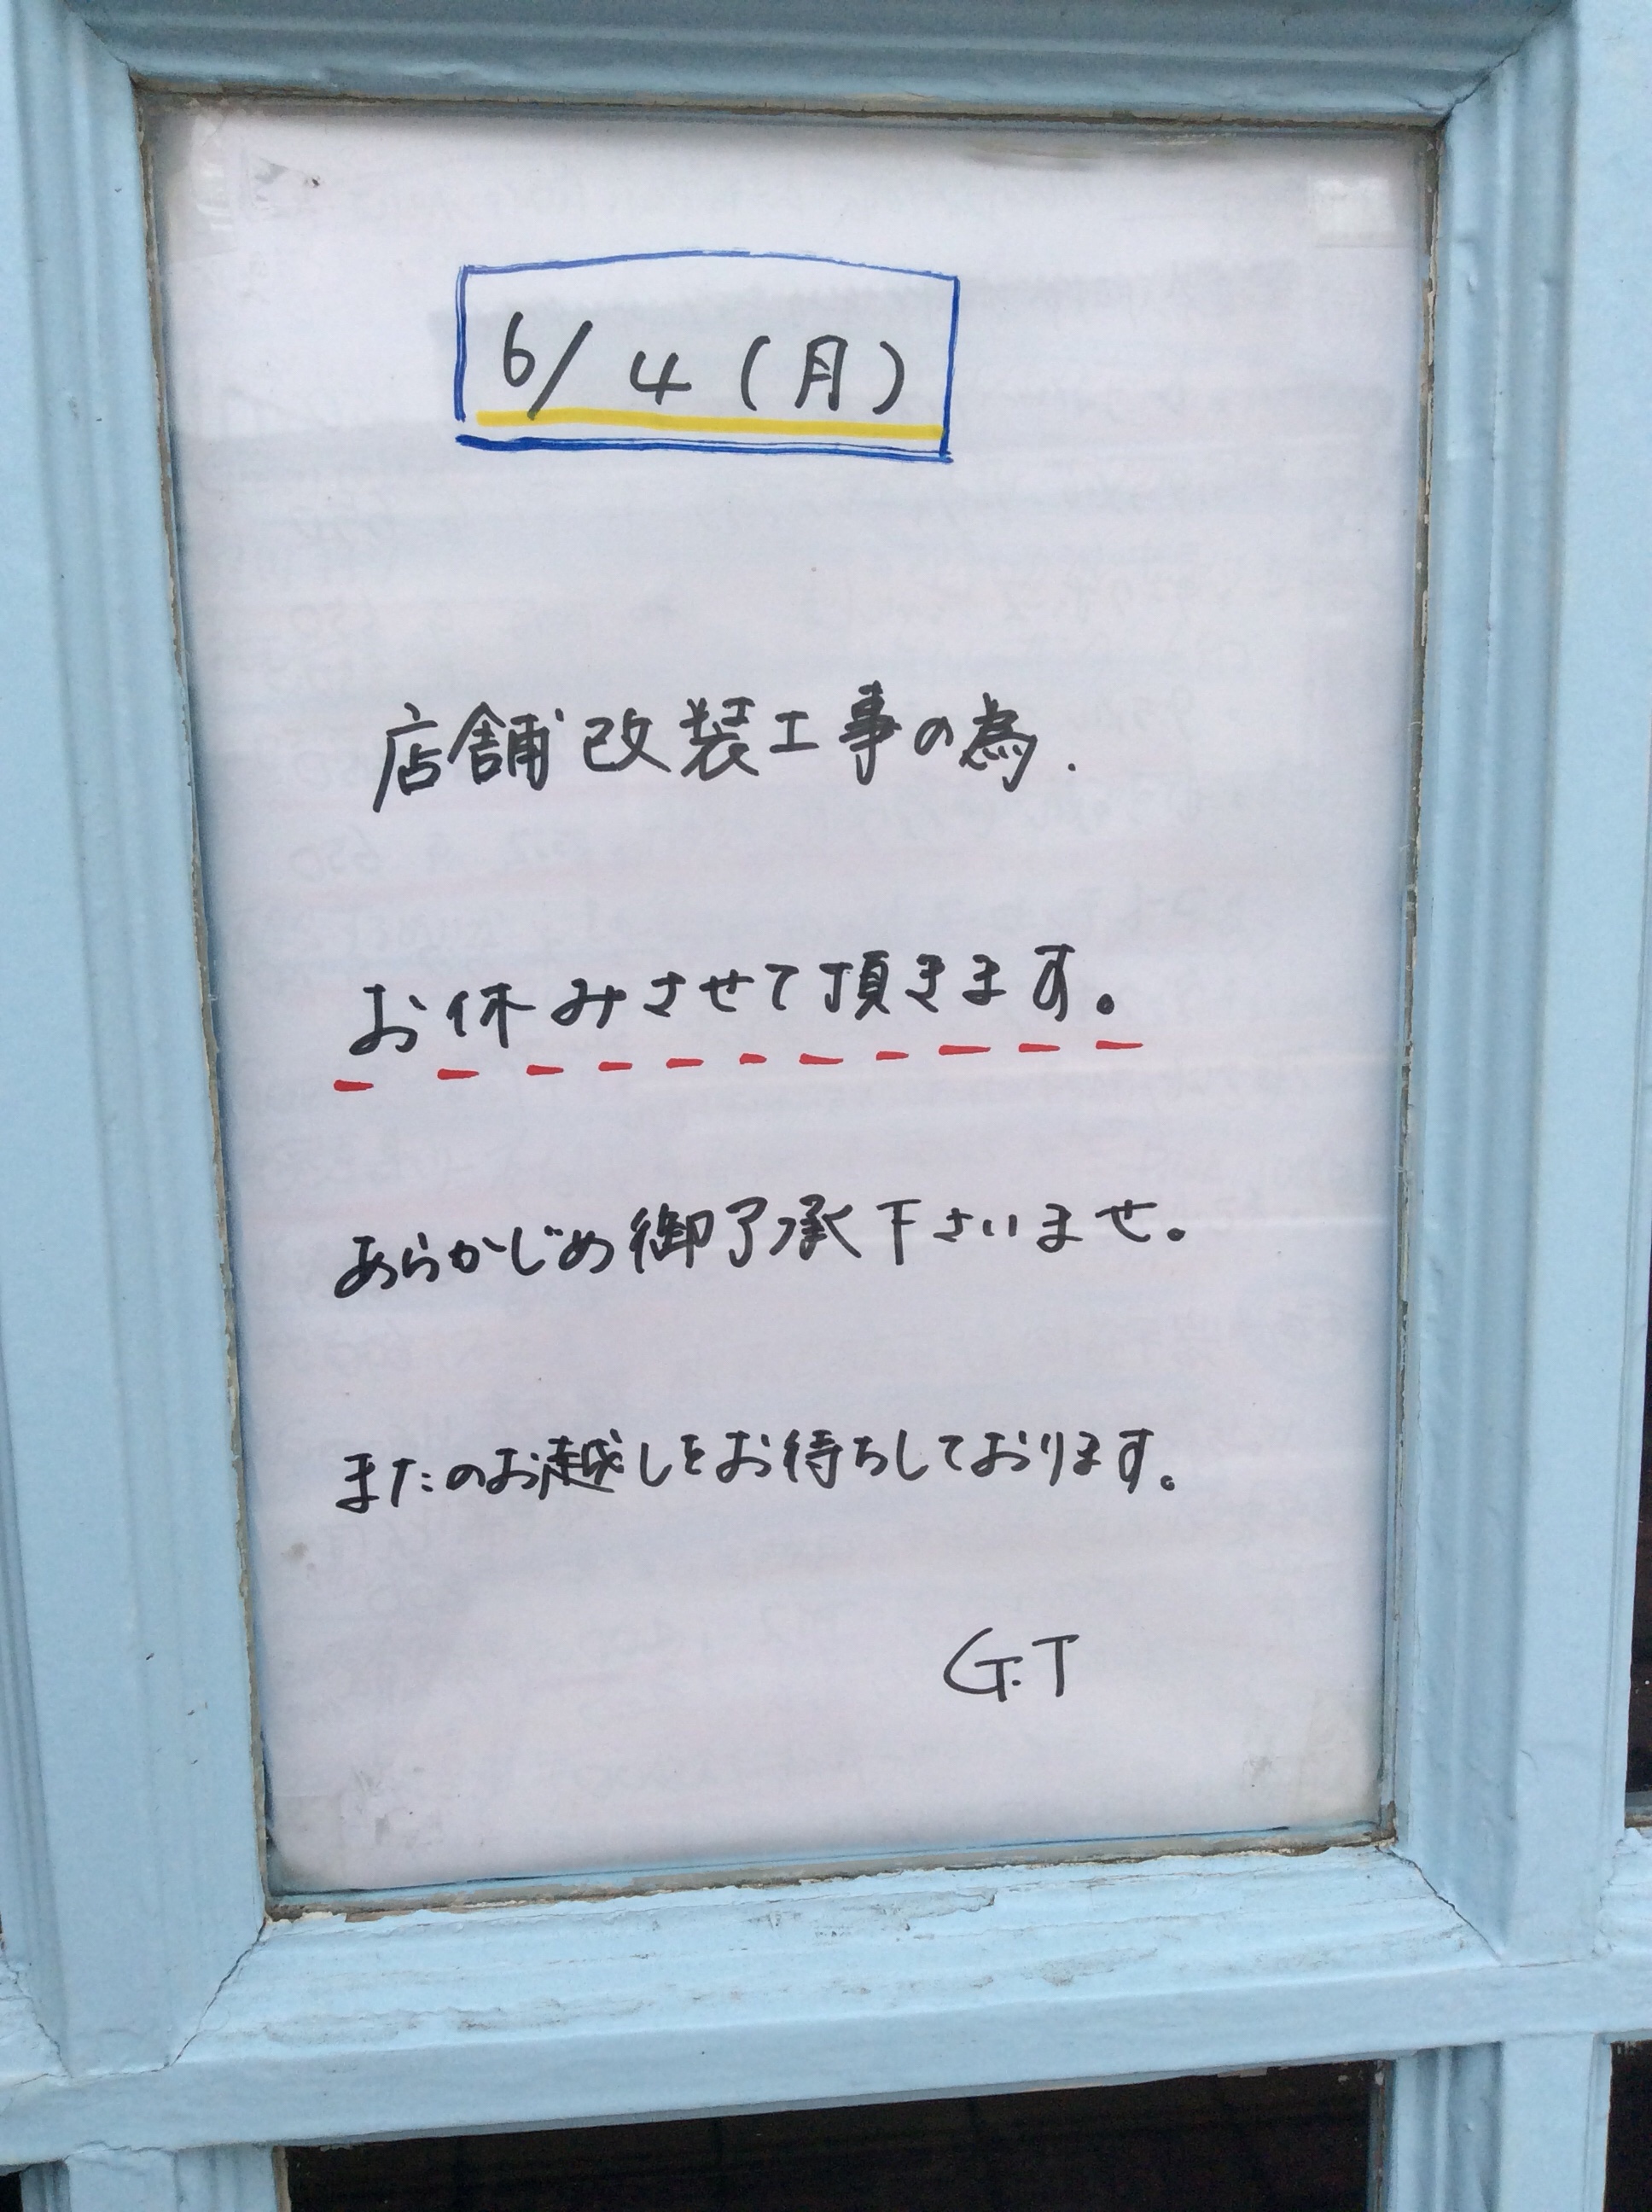 6/4(月)
店舗改装工事の為.
お休みさせて頂きます。
あらかじめ御了承下さいませ。
またのお越しをお待ちしております。
G.T